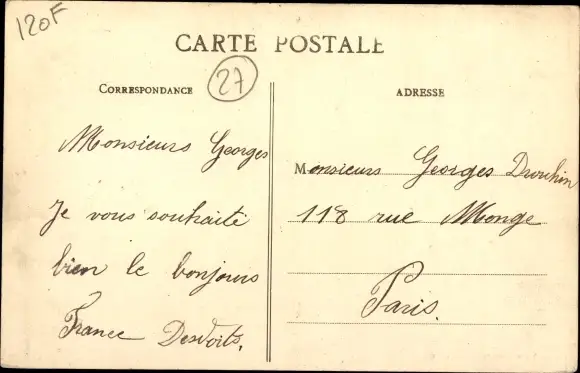 120F
CARTE POSTALE
27
CORRESPONDANCE
Monsieurs Georges
Je vous souhaite
bien le bonjours
France Desvoits.
ADRESSE
Monsieurs Georges
118 rue Monge
Paris.